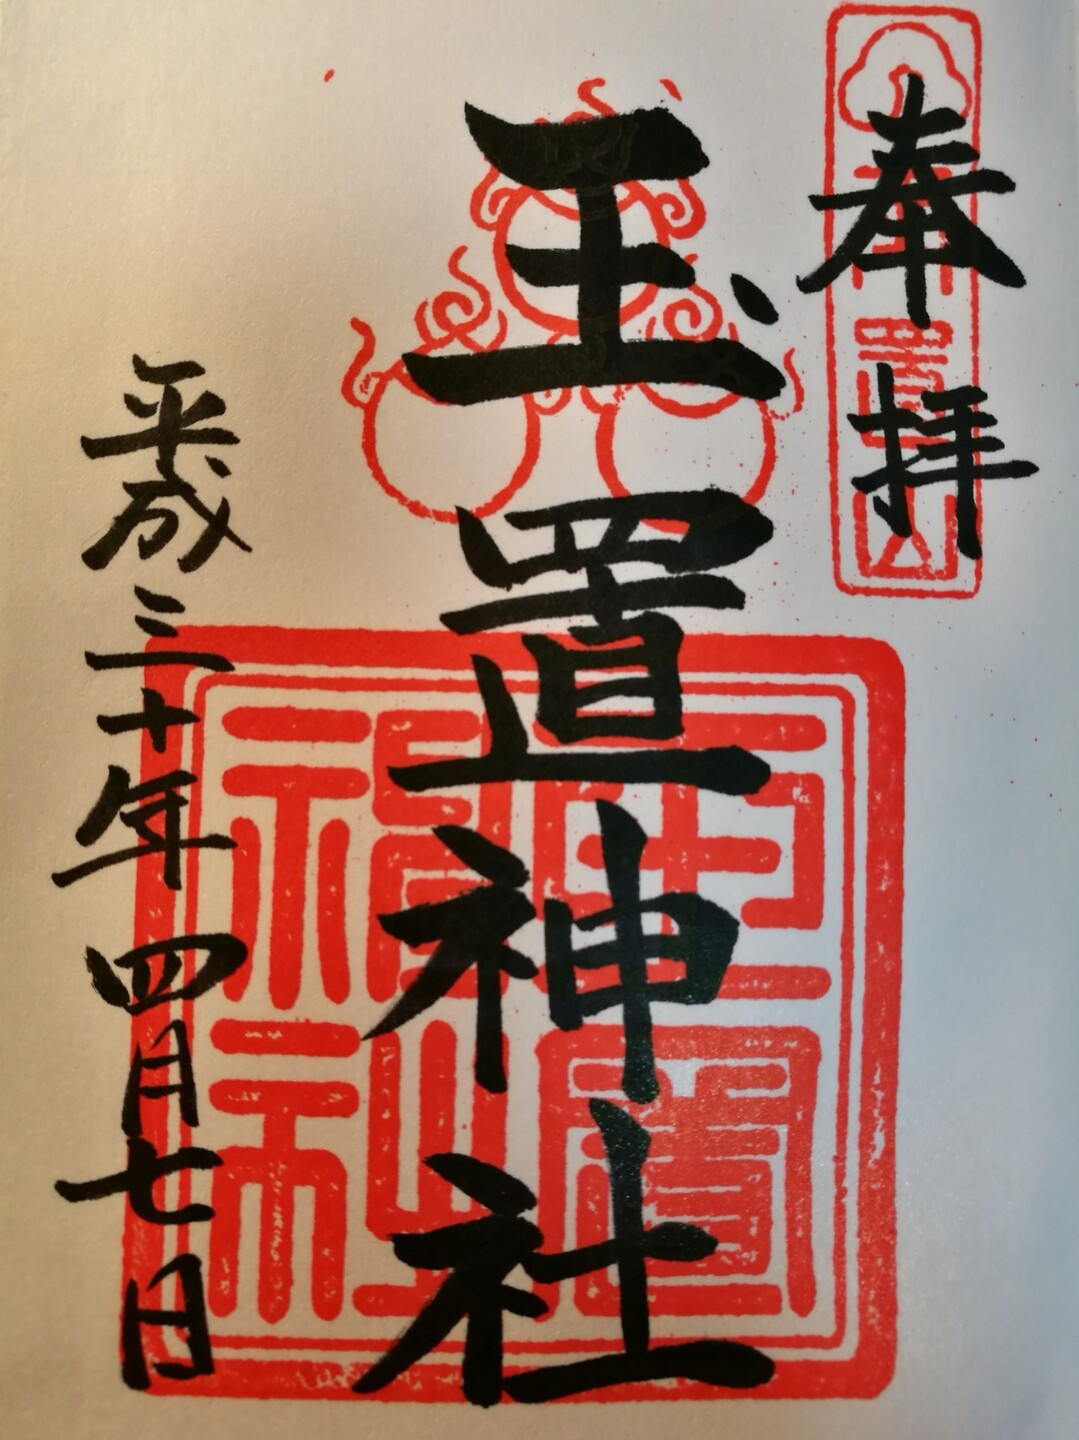 奉拝
玉置神社
平成三十年四月七日
玉置神社